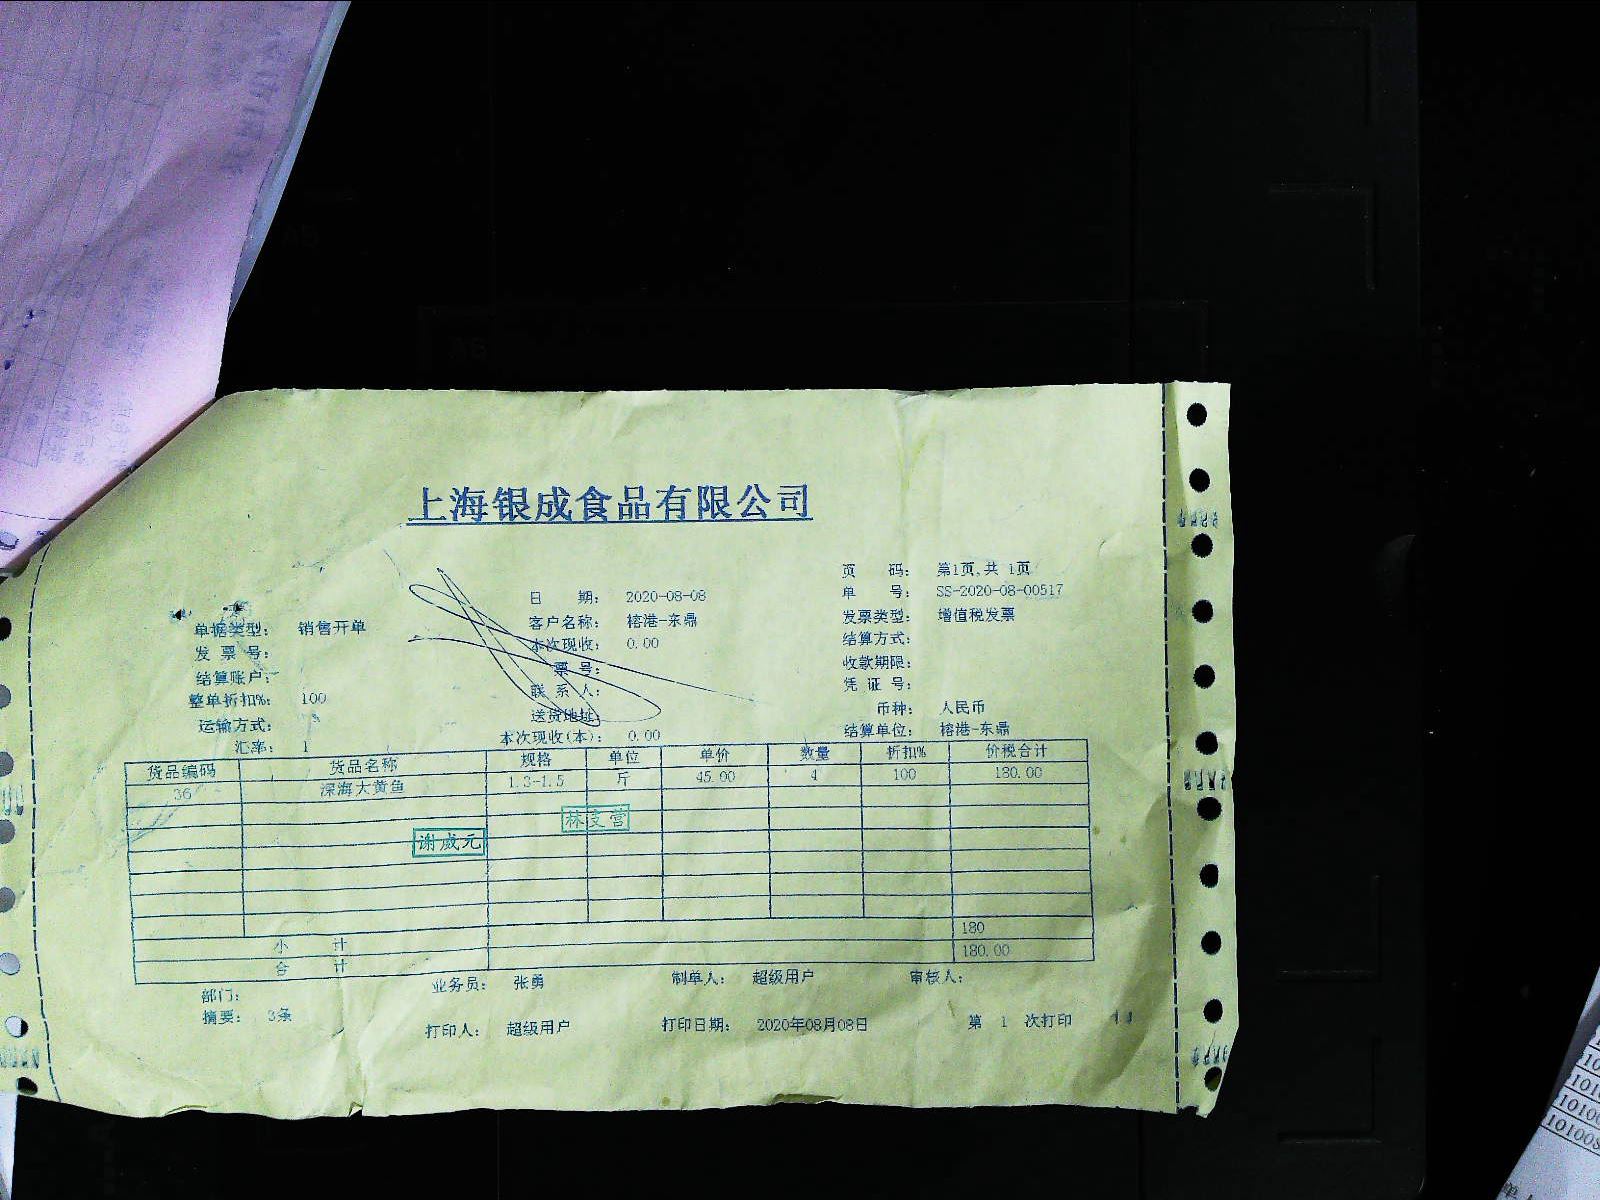 上海银成食品有限公司
页 码: 第1页,共 1页
日 期: 2020-08-08 单 号: SS-2020-08-00517
单据类型: 销售开单 客户名称: 榕港-东鼎 发票类型: 增值税发票
发 票 号: 本次现收: 0.00 结算方式:
结算账户: 票 号: 收款期限:
整单折扣%: 100 联 系 人: 凭 证 号:
运输方式: 送货地址: 币种: 人民币
汇率: 1 本次现收(本): 0.00 结算单位: 榕港-东鼎
货品编码 货品名称 规格 单位 单价 数量 折扣% 价税合计
36 深海大黄鱼 1.3-1.5 斤 45.00 4 100 180.00
林支营
谢威元
小 计 180
合 计 180.00
部门: 业务员: 张勇 制单人: 超级用户 审核人:
摘要: 3条 打印人: 超级用户 打印日期: 2020年08月08日 第 1 次打印